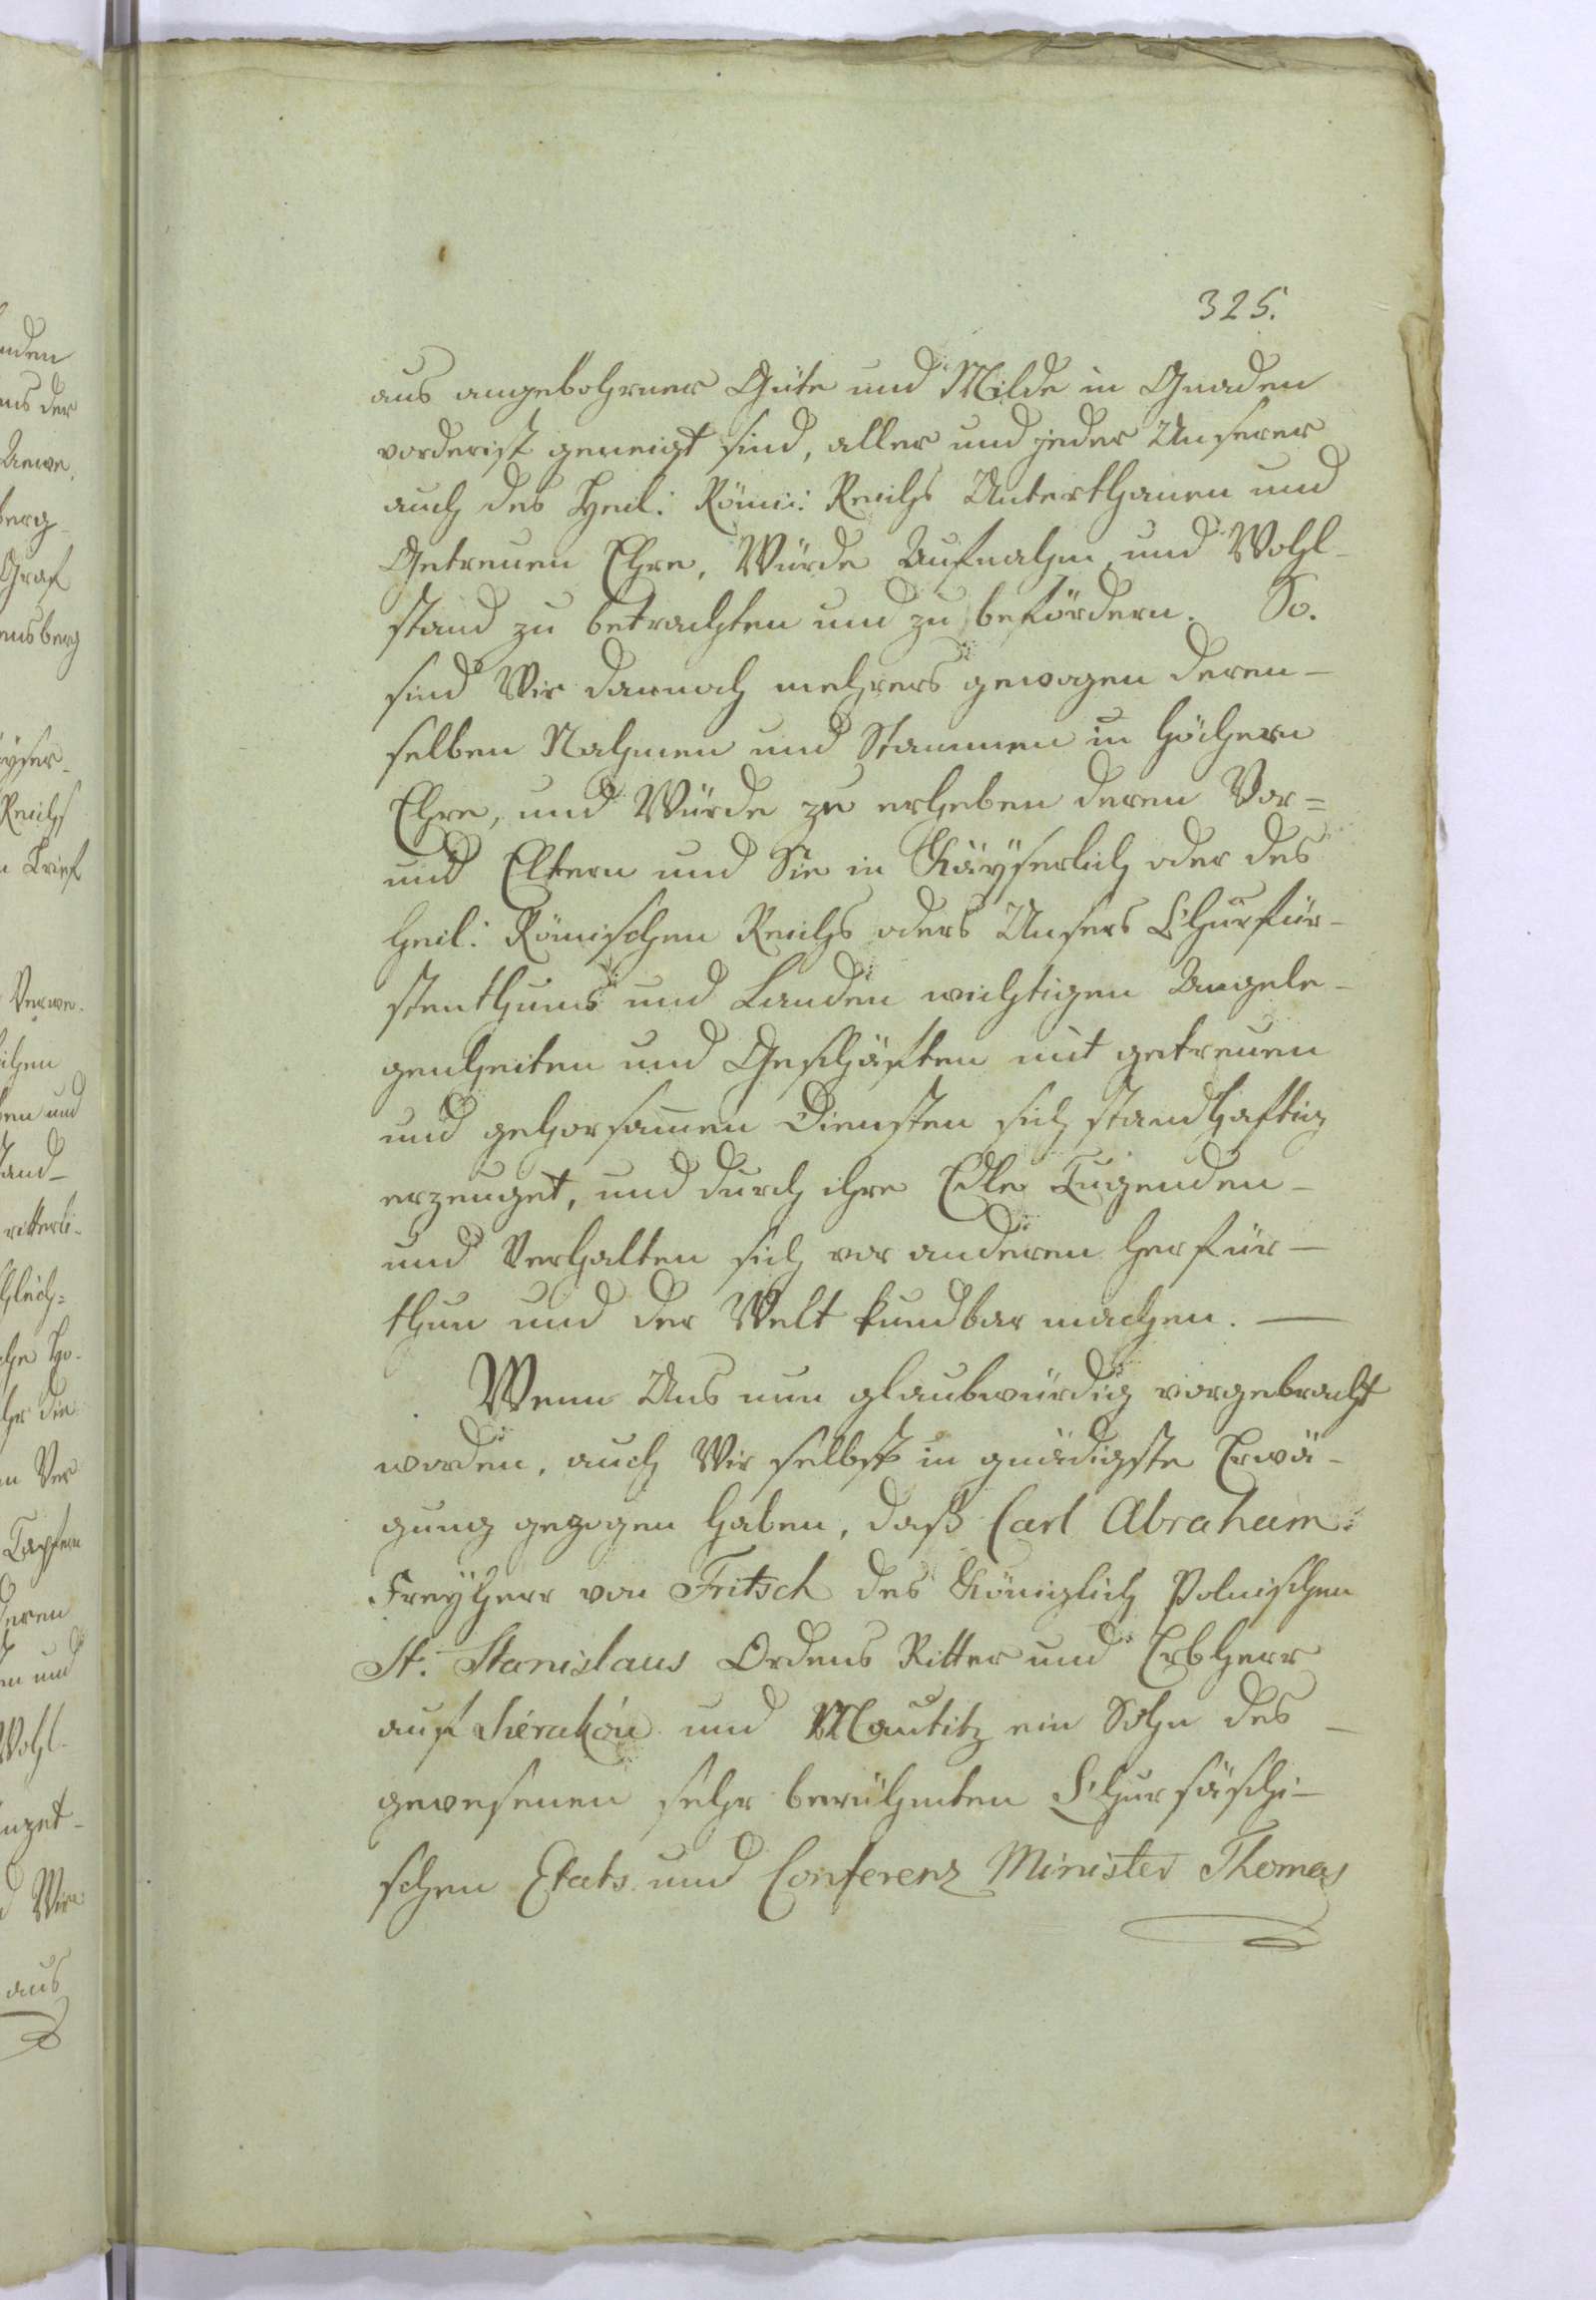 325.
aus angebohrner Güte und Milde in Gnaden
vorderist geneigt sind, aller und jeder Unserer
auch des Heil: Römi: Reichs Unterthanen und
Getreuen Ehre, Würde Aufnahm und Wohl-
stand zu betrachten und zu befördern. So.
sind Wir darnach mehrers gewogen deren-
selben Nahmen und Stammen in höchern
Ehre, und Würde zu erheben deren Vor=
und Eltern und Sie in Kaÿserlich oder des
heil: Römischen Reichs oders Unsers Churfür-
stenthums und Landen wichtigen Angele-
genheiten und Geschäften mit getreuen
und gehorsamen Diensten sich standhaftig
erzeuget, und durch ihre Edle Tugenden-
und Verhalten sich vor anderen herfür-
thun und der Welt kundbar machen. —
Wenn Uns nun glaubwürdig vorgebracht
worden, auch Wir selbst in gnädigste Erwä-
gung gezogen haben, daß Carl Abraham
Freÿherr von Fritsch des Königlich Polnischen
St. Stanislaus Ordens Ritter und Erbherr
auf und Mautitz ein Sohn des
gewesenen sehr berühmten Chursäschi-
schen Etats und Conferenz Minister Thomas
nden
ens der
berg-
Graf
ensberg
Reichs
Brief
Verwe-
ichen
ben und
tand-
ritterli-
che Ho-
die
Ver
Tapfern
deren
en und
Wohl-
Wir
aus